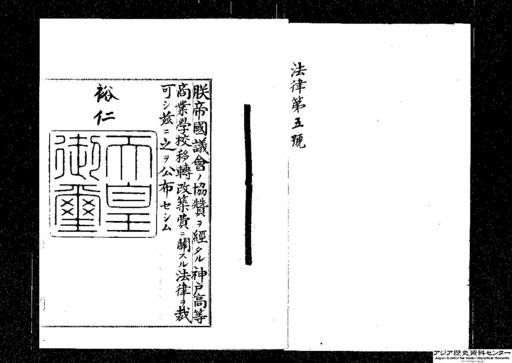 法律第五號
朕帝國議會ノ協贊ヲ經タル神戸高等
商業學校移轉改築費ニ關スル法律ヲ裁
可シ茲ニ之ヲ公布セシム
裕仁
天皇
御璽
アジア歴史資料センター
Japan Center for Asian Historical Records